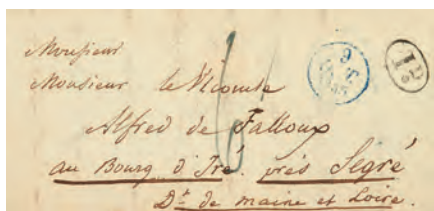 Monsieur
Monsieur le Vicomte
Alfred de Falloux
au Bourg d'Iré. près Segré
Dt de maine et Loire.
6